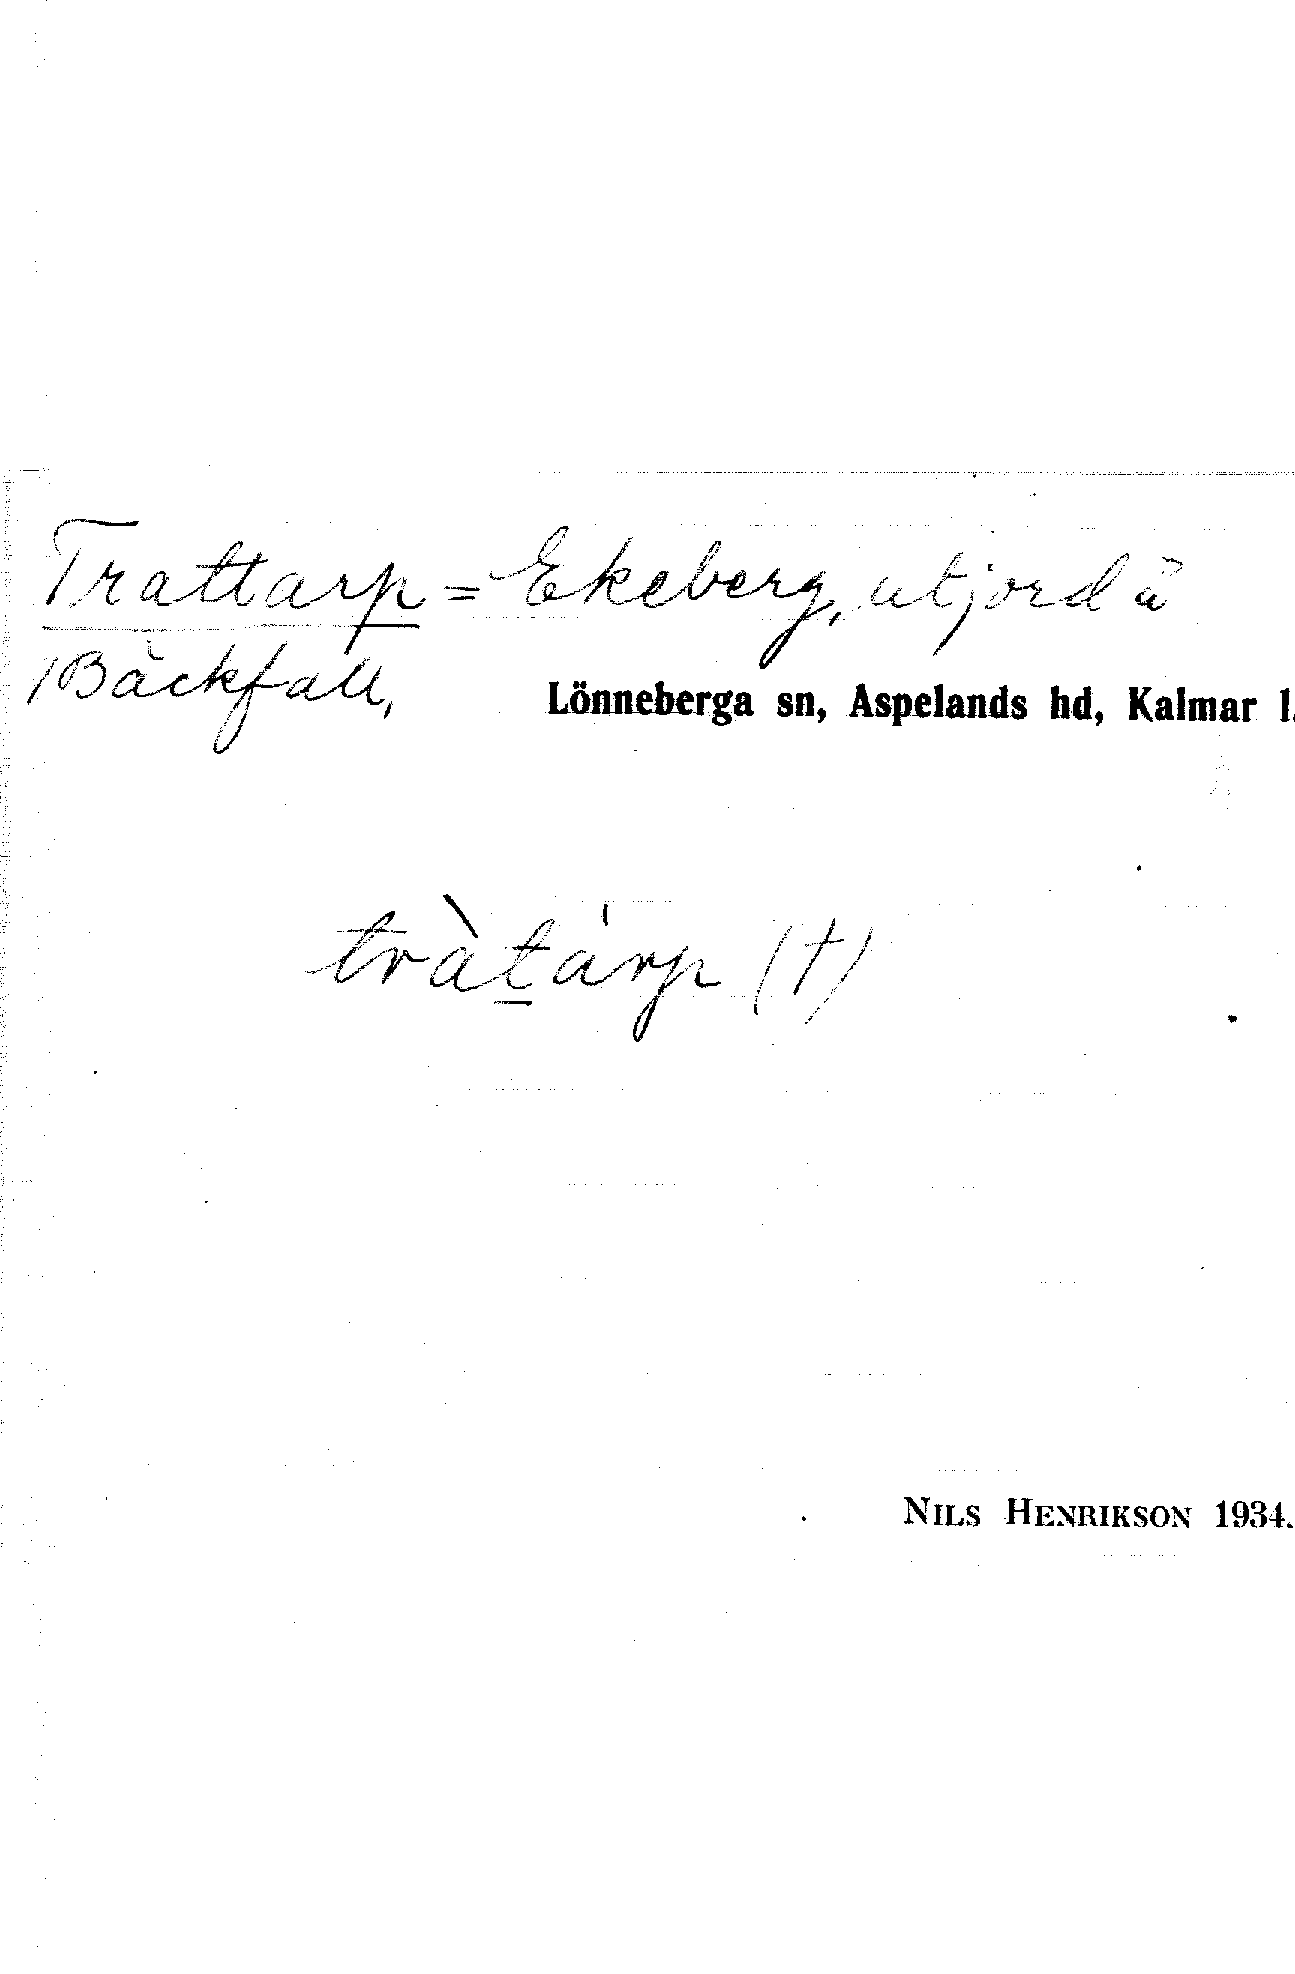 Trattarp = Ekeberg, utjord u
/Bäckfall,
Lönneberga sn, Aspelands hd, Kalmar l.
tràtárp (†)
NILS HENRIKSON 1934.